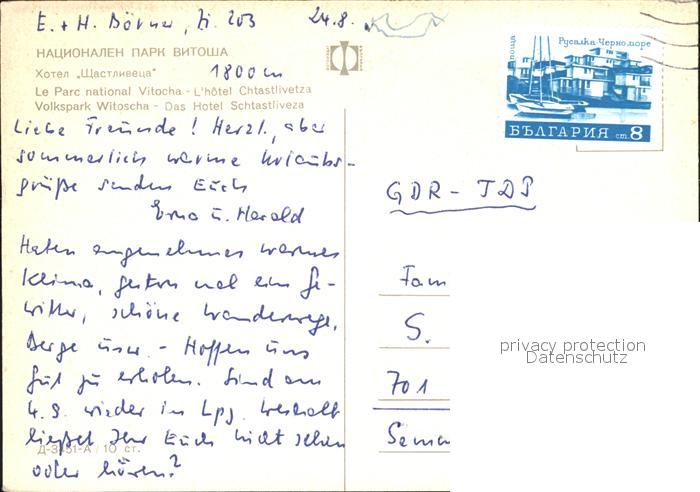 E. + H. Börner, Zi. 203 24.8.
НАЦИОНАЛЕН ПАРК ВИТОША
Хотел „Щастливеца" 1800 m
Le Parc national Vitocha - L'hôtel Chtastlivetza
Volkspark Witoscha - Das Hotel Schtastliveza
Liebe Freunde! Herzl., aber
sommerlich warme Urlaubs-
grüße senden Euch
Erna u. Harald
Haben angenehmes warmes
Klima, gestern mal ein Ge-
witter, schöne Wanderwege,
Berge usw. - Hoffen uns
gut zu erholen. Sind am
4.9. wieder in Lpg. Weshalb
ließet Ihr Euch nicht sehen
oder hören?
Д-3451-А / 10 ст.
поща
Русалка-Черно море
БЪЛГАРИЯ ст. 8
GDR - ГДР
Fam
S.
701
privacy protection
Datenschutz